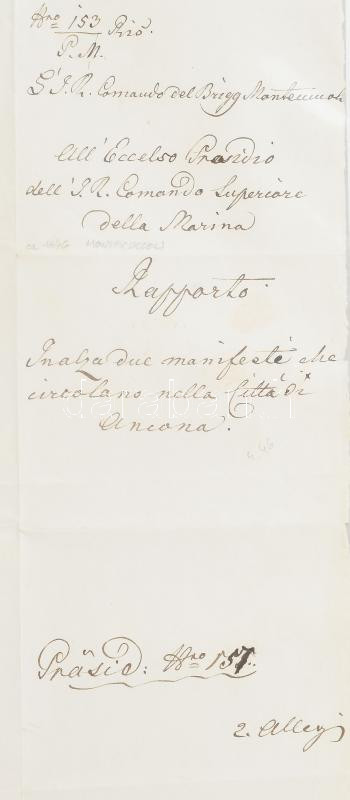 Nro 153 Riõ.
P.M.
L'I. R. Comando del Brigg Montecuccoli
All' Eccelso Presidio
dell' I. R. Comando Superiore
della Marina
MONTECUCCOLI
Rapporto.
Inalza due manifesti che
circolano nella Città di
darabanth
Ancona.
Präsid: Nro 157.
2. Alleg